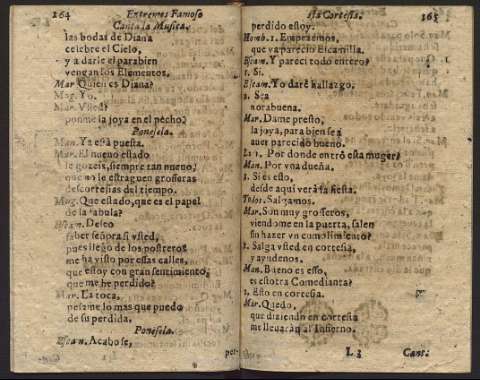 164 Entremes Famoso
Canta la Musica.
las bodas de Diana
celebre el Cielo,
y a darle el parabien
vengan los Elementos.
Mar. Quien es Diana?
Mug. Yo.
Mar. Vsted?
ponme la joya en el pecho?
Ponesela.
Man. Ya està puesta.
Mar. El nueuo estado
le gozeis, siempre tan nueuo,
que no le estraguen groseras
descortesias del tiempo.
Mug. Que estado, que es el papel
de la fabula?
Escam. Deseo
saber señora si vsted,
pues llegò de los postreros
me ha visto por essas calles,
que estoy con gran sentimiento,
que me he perdido?
Mar. La toca,
pesame lo mas que puedo
de su perdida.
Ponesela.
Escam. Acabose,
per-
la Cortesia. 165
perdido estoy.
Homb. 1. Empezemos,
que ya pareciò Escamilla.
Escam. Y pareci todo entero?
1. Si.
Escam. Yo darè hallazgo,
2. Sea
norabuena.
Mar. Dame presto,
la joya, para bien sea
auer parecido bueno.
La 1. Por donde entrò esta muger?
Man. Por vna dueña.
1. Si es esso,
desde aqui verà la fiesta.
Todos. Salgamos.
Mar. Son muy grosseros,
viendome en la puerta, salen
sin hazer vn cumplimiento?
1. Salga vsted en cortesia,
y ayudenos.
Man. Bueno es esso,
es essotra Comedianta?
1. Esto en cortesia.
Mar. Quedo,
que diziendo en cortesia
me lleuaràn al Infierno.
L 3 Cant.